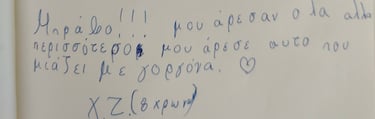 Μπράβο!!! μου άρεσαν ο λα αλλα
περισσότερο μου άρεσε αυτο που
μιάζει με γοργόνα. ♡
Χ Ζ. (8 χρωνη)